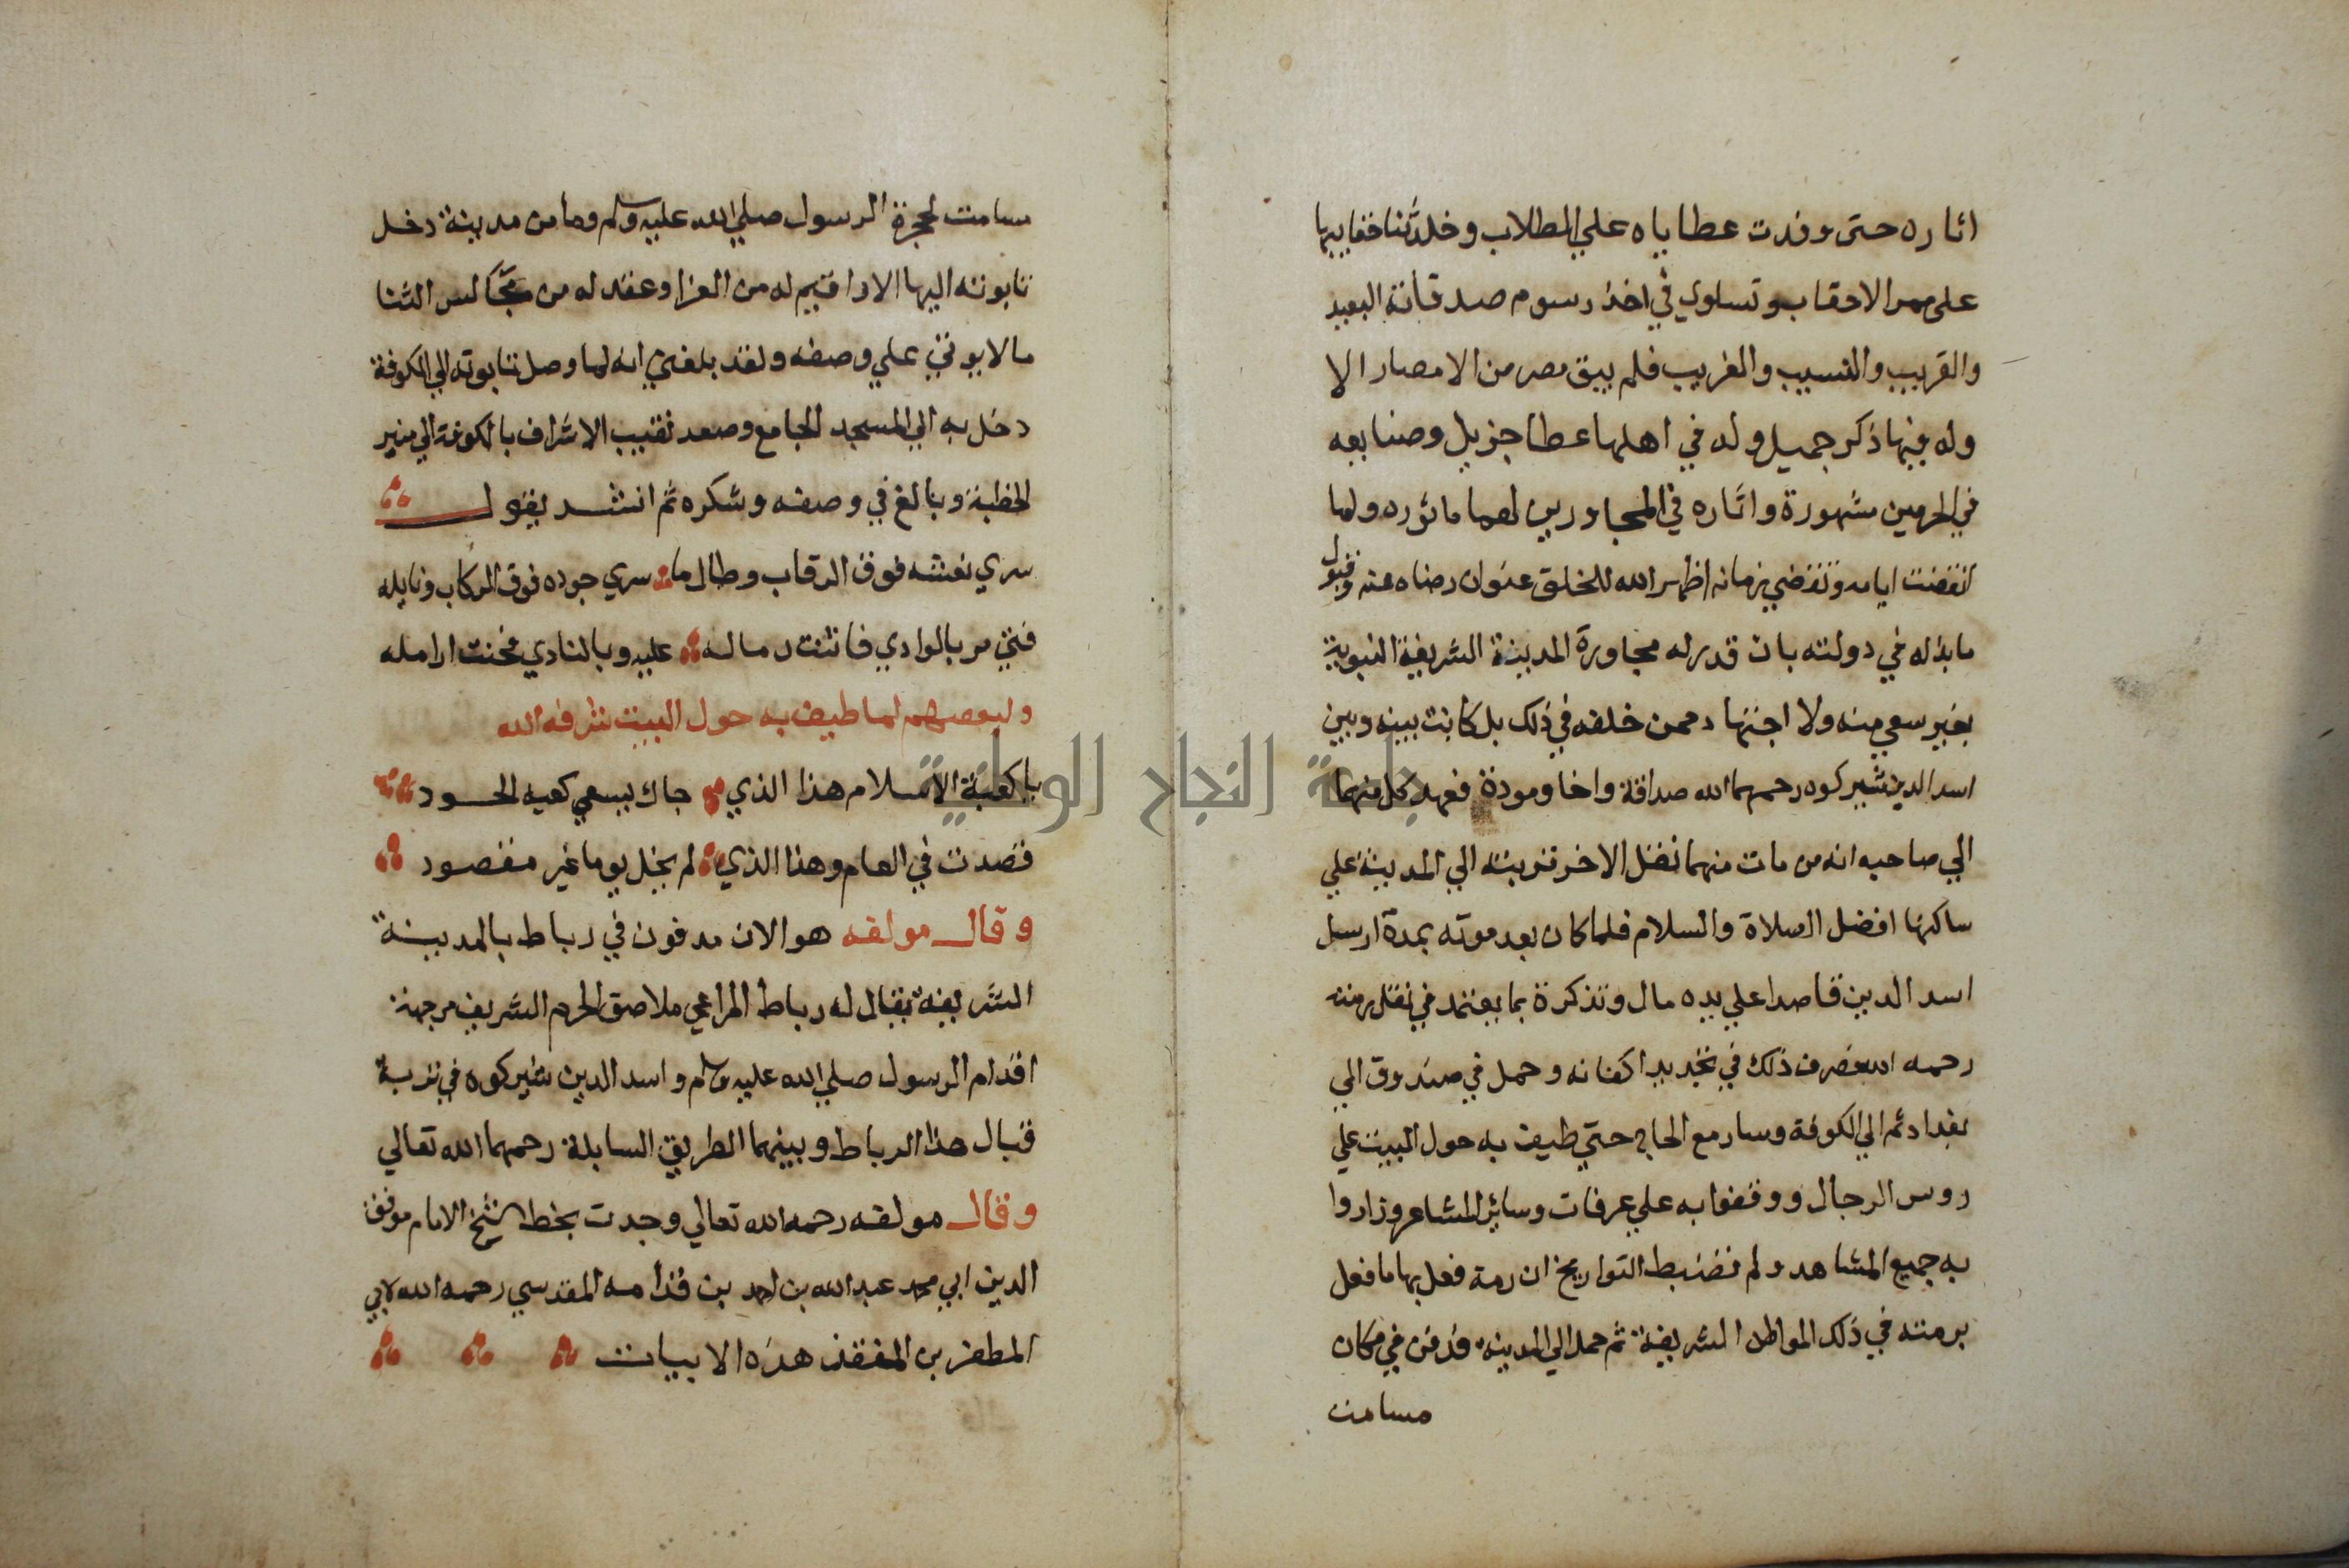 اثاره حتى وفدت عطاياه علي الطلاب وخلدتنا خفاييها
على ممر الاحقاب وتساوي في اخذ رسوم صدقاته البعيد
والقريب والنسيب والغريب فلم يبق مصر من الامصار الا
وله فيها ذكر جميل وله في اهلها عطا جزيل وصنايعه
في الحرمين مشهورة واثاره في المجاورين لهما ماثوره ولما
انقضت ايامه وتقضي زمانه اظهر الله للخلق عنوان رضاه عنه وقبول
ما بذله في دولته بان قدر له مجاورة المدينة الشريفة النبوية
بغير سعي منه ولا اجتهاد ممن خلفه في ذلك بل كانت بينه وبين
اسد الدين شيركوه رحمهما الله صداقة واخا ومودة فعهد كل منهما
الي صاحبه انه من مات منهما نقل الاخر تربته الي المدينة علي
ساكنها افضل الصلاة والسلام فلما كان بعد موته بمدة ارسل
اسد الدين قاصدا علي يده مال وتذكرة بما يعتمد في نقل رمته
رحمه الله فصرف ذلك في تجديد اكفانه وحمل في صندوق الي
بغداد ثم الي الكوفة وسار مع الحاج حتي طيف به حول البيت علي
روس الرجال ووقفوا به علي عرفات وساير المشاعر وزاروا
به جميع المشاهد ولم تضبط التواريخ ان رمة فعل بها ما فعل
برمته في ذلك المواطن الشريفة ثم حمل الي المدينة فدفن في مكان
مسامت
مسامت لحجرة الرسول صلي الله عليه وسلم وما من مدينة دخل
تابوته اليها الا واقيم له من العزا وعقد له من مجالس الثنا
ما لا يوتي علي وصفه ولقد بلغني انه لما وصل تابوته الي الكوفة
دخل به الي المسجد الجامع وصعد نقيب الاشراف بالكوفة الي منبر
الخطبة وبالغ في وصفه وشكره ثم انشد يقول
سري نعشه فوق الرقاب وطال ما سري جوده فوق الركاب ونايله
فتي مر بالوادي فاثنت رماله عليه وبالنادي فحنت ارامله
ولبعضهم لما طيف به حول البيت شرفه الله
يا كعبة الاسلام هذا الذي جاك يسعي كعبه الجود
قصدت في العام وهذا الذي لم يخل يوما غير مقصود
وقال مولفه هو الان مدفون في رباط بالمدينة
الشريفة يقال له رباط المراغي ملاصق الحرم الشريف من جهة
اقدام الرسول صلي الله عليه وسلم واسد الدين شيركوه في تربة
قبال هذا الرباط وبينهما الطريق السابلة رحمهما الله تعالي
وقال مولفه رحمه الله تعالي وجدت بخط الشيخ الامام موفق
الدين ابي محمد عبد الله بن احمد بن قدامه المقدسي رحمه الله لابي
المظفر بن المنقذ هذه الابيات
جامعة النجاح الوطنية